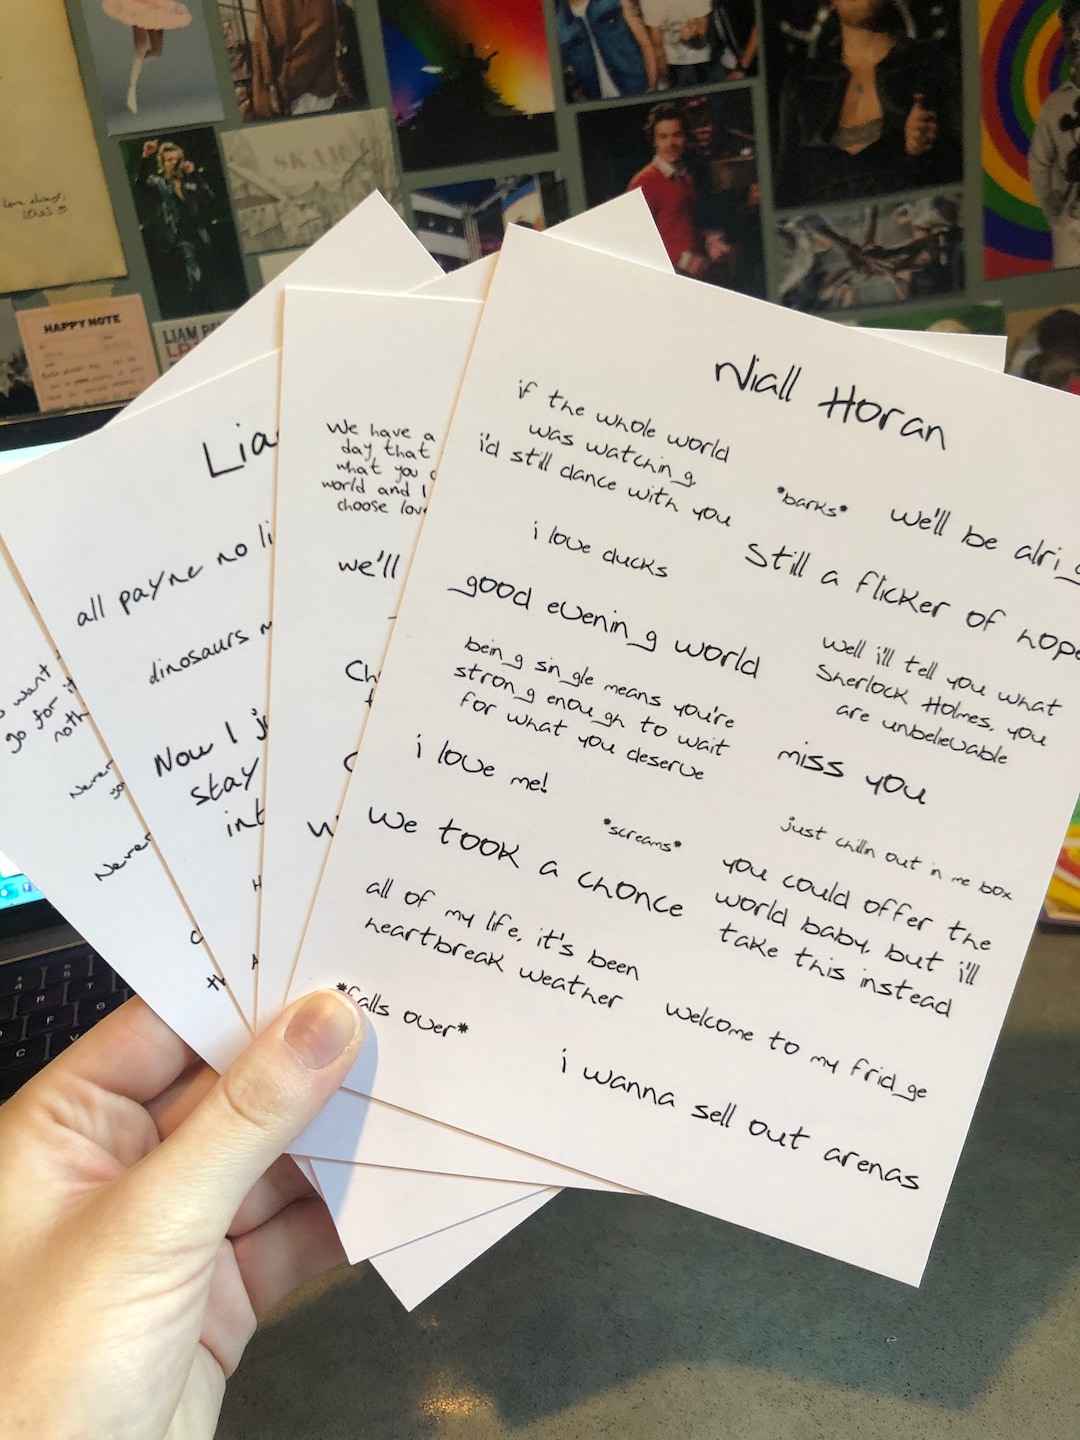 Niall Horan
if the whole world
was watching
i'd still dance with you
*barks*
we'll be alrig
i love ducks
still a flicker of hope
good evening world
well i'll tell you what
Sherlock Holmes, you
are unbelievable
being single means you're
strong enough to wait
for what you deserve
miss you
i love me!
just chillin out in me box
*screams*
we took a chonce
you could offer the
world baby, but i'll
take this instead
all of my life, it's been
heartbreak weather
welcome to my fridge
*falls over*
i wanna sell out arenas
We have a
day that
what you
world and I
choose lov
we'll
Ch
Lia
all payne no li
dinosaurs
Now I j
stay
int
want
go for it
noth
Never
yo
Never
th
HAPPY NOTE
LIAM
LOUIS